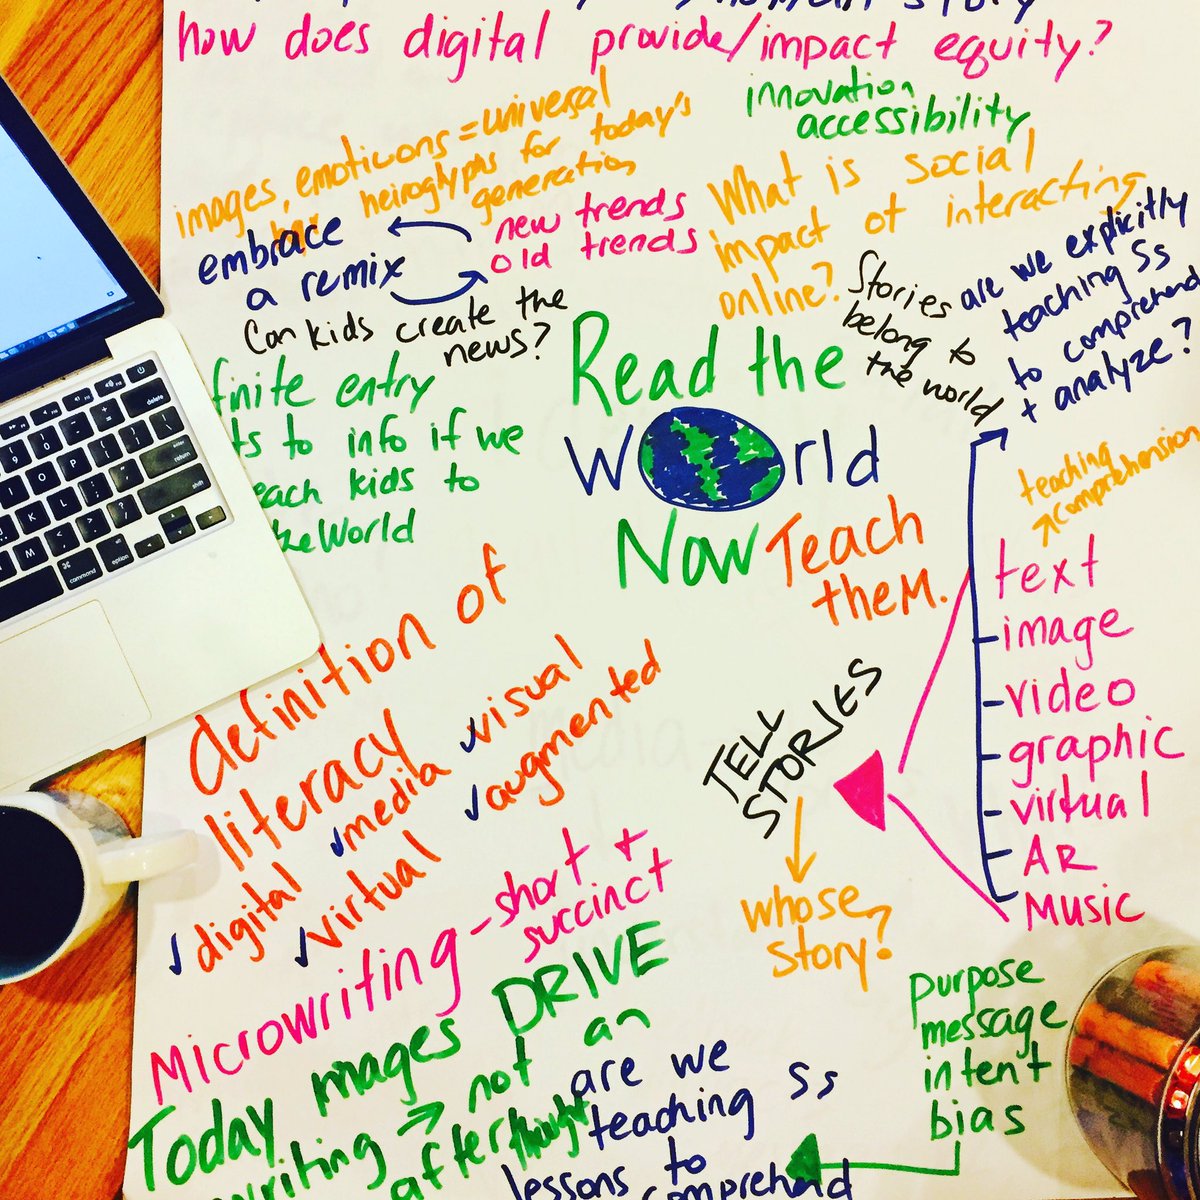 story
how does digital provide/impact equity?
innovation
accessibility
images, emoticons = universal
heiroglyphs for today's
generation
embrace
a remix
new trends
old trends
What is social
impact of interacting
online?
Stories
belong to
the world
are we explicitly
teaching Ss
to comprehend
+ analyze?
Can kids create the
news?
finite entry
ts to info if we
each kids to
theWorld
Read the
W rld
Now Teach
theM.
teaching
comprehension
text
image
video
graphic
virtual
AR
MUSIC
definition of
literacy
digital
media
visual
virtual
augmented
TELL
STORIES
whose
story?
Microwriting - short +
succinct
Today images DRIVE
writing → not an
afterthought
are we
teaching Ss
lessons to
comprehend
purpose
message
intent
bias
command
option
delete
enter
return
shift